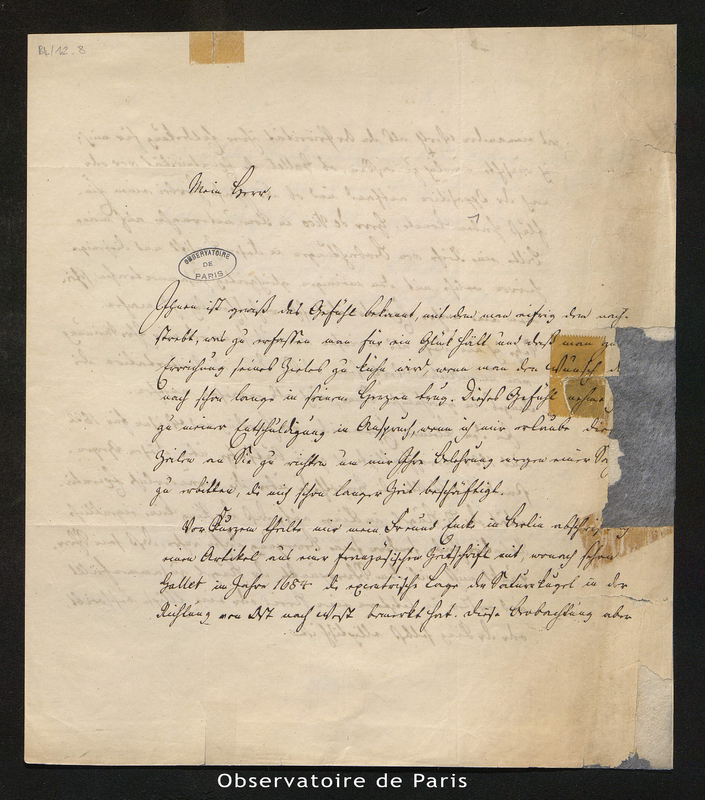 B4/12-8
Mein Herr,
OBSERVATOIRE
DE
PARIS
Ihnen ist gewiß das Gefühl bekannt, mit dem man eifrig dem nach-
strebt, was zu erfassen man für ein Glück hält und daß man zu
Erreichung seines Zieles zu kühn wird, wenn man den Wunsch d
nach schon lange in seinem Herzen trug. Dieses Gefühl nehme
zu meiner Entschuldigung in Anspruch, wenn ich mir erlaube die
Zeilen an Sie zu richten um mir Ihre Belehrung wegen einer Sa
zu erbitten, die mich schon lange Zeit beschäftigt.
Vor Kurzem theilte mir mein Freund Encke in Berlin
einen Artikel aus einer französischen Zeitschrift mit, wonach schon
Gallet im Jahre 1684 die excentrische Lage der Saturnkugel in der
Richtung von Ost nach West bemerkt hat. Diese Beobachtung aber
Observatoire de Paris